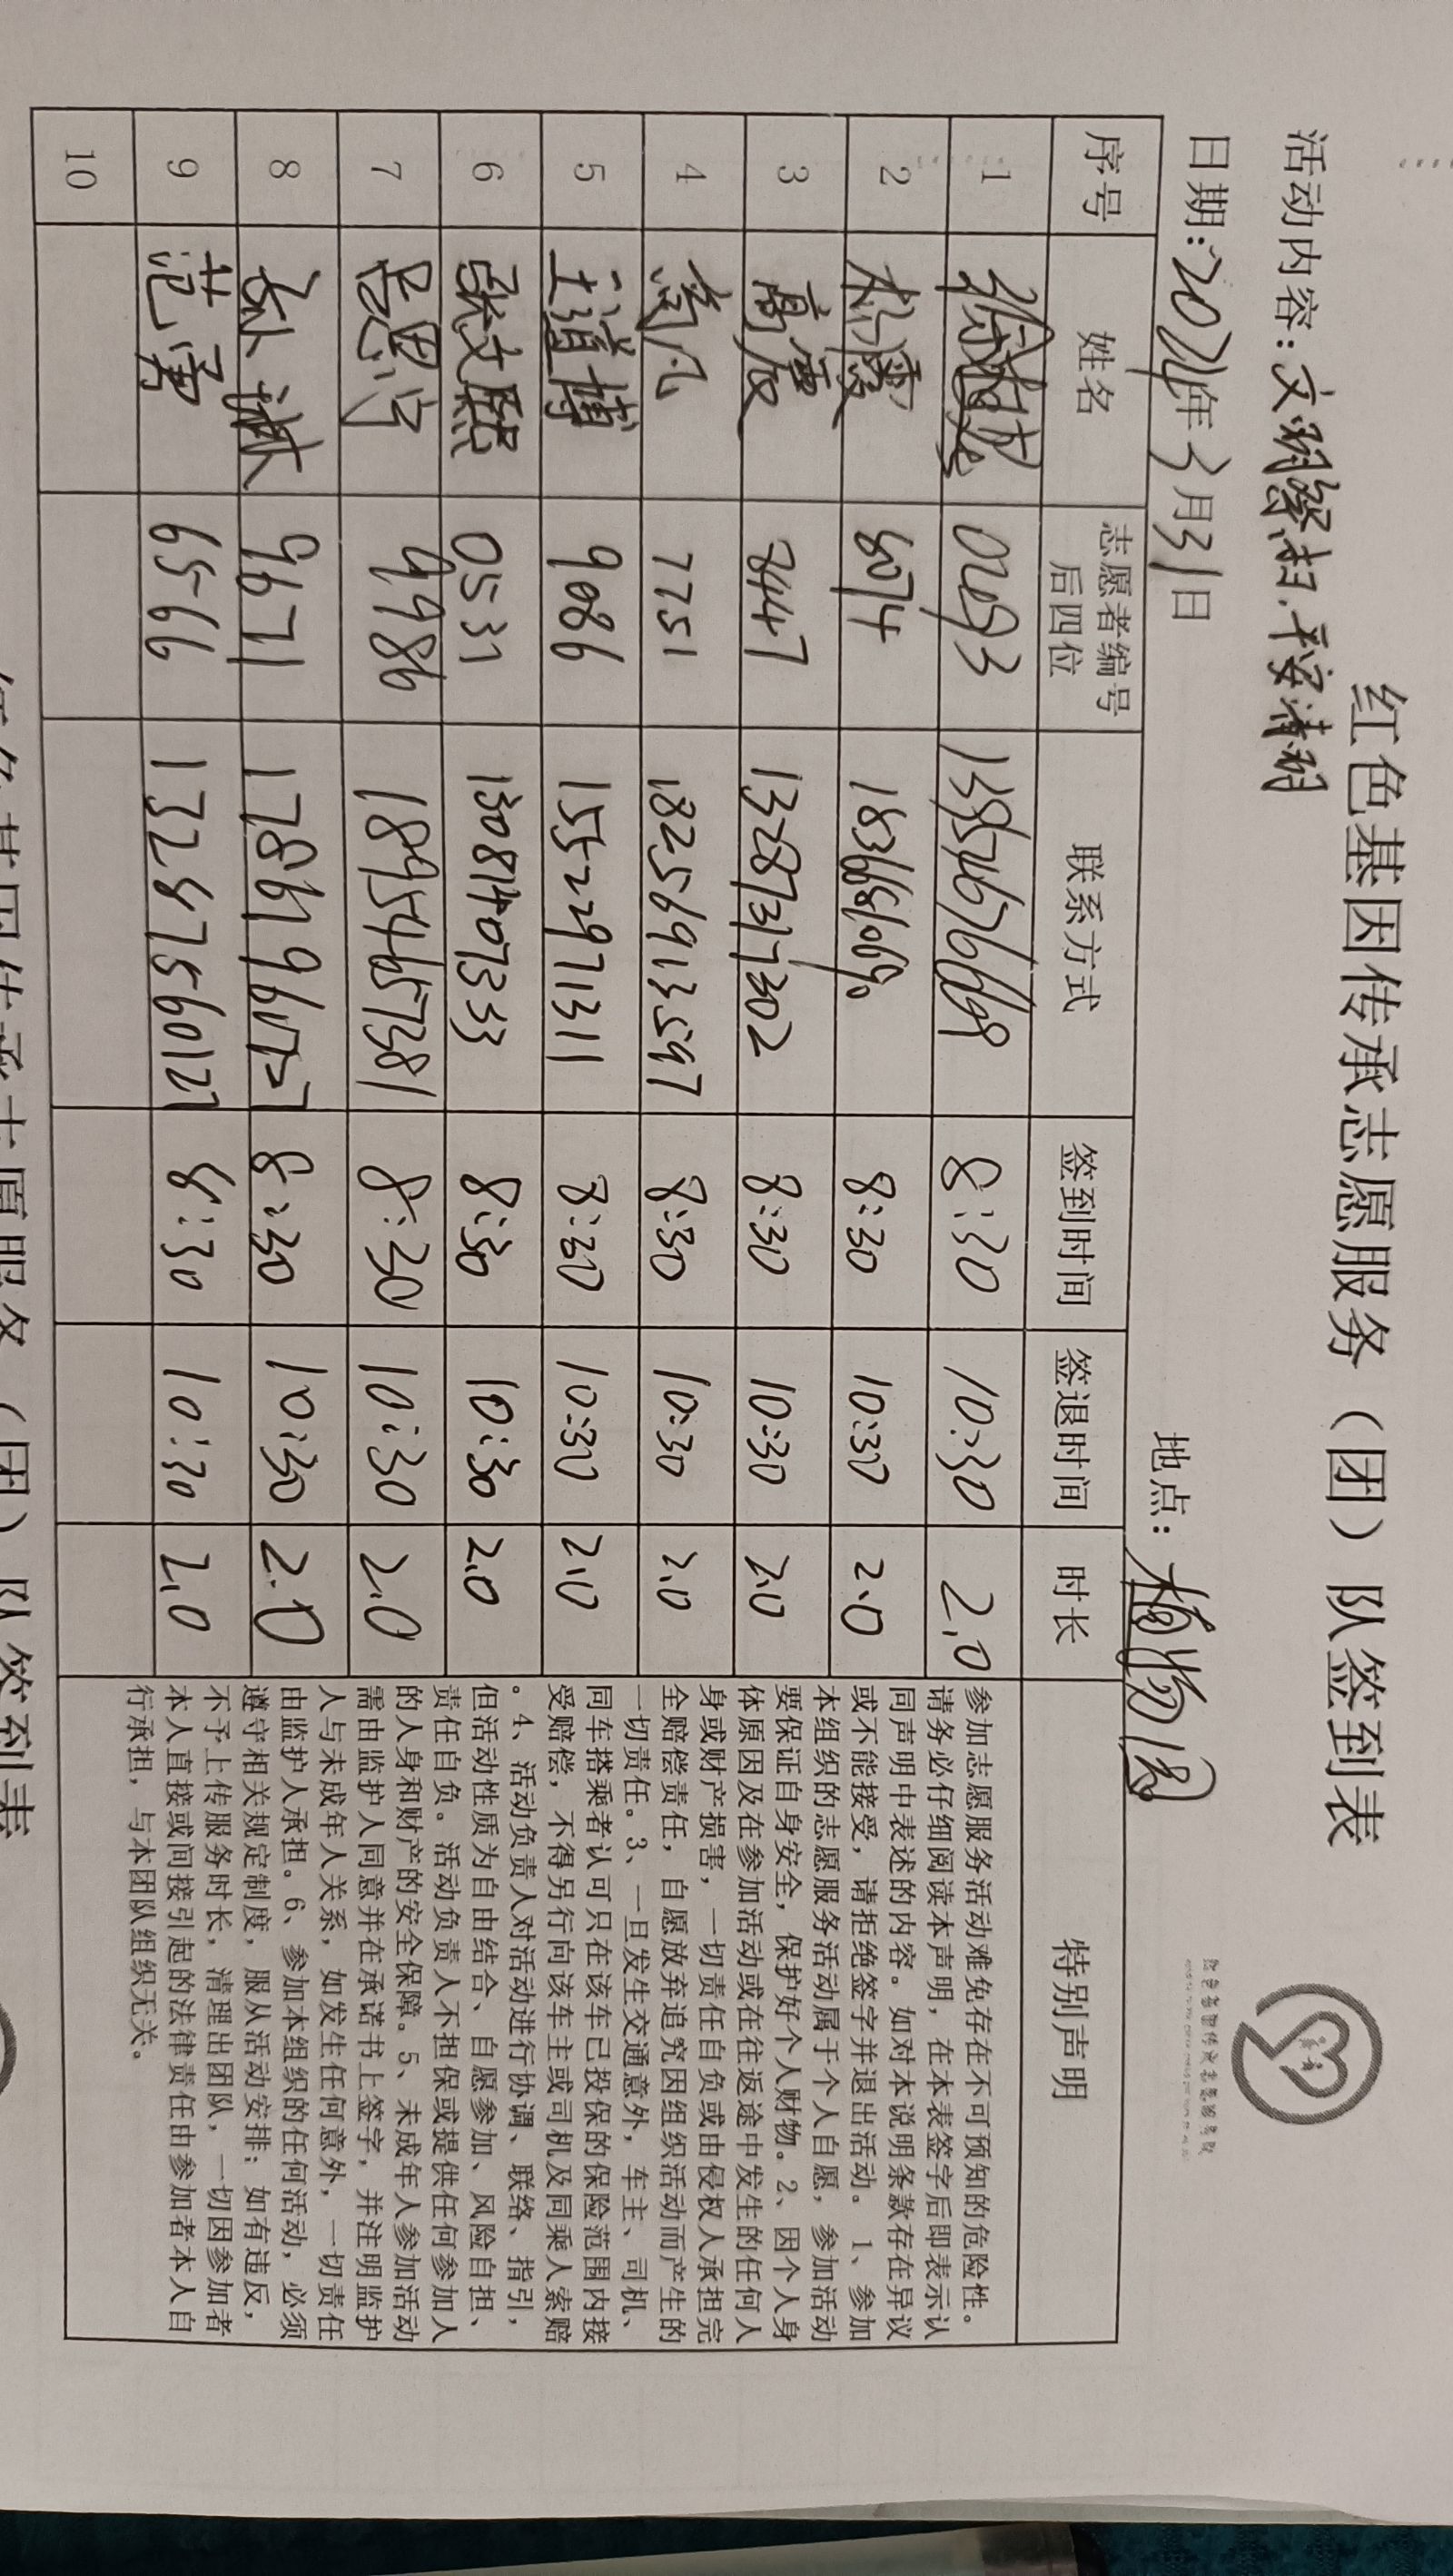 红色基因传承志愿服务（团）队签到表
活动内容：文明祭扫.平安清明
日期：2024年3月31日 地点：植物园
序号 姓名 志愿者编号后四位 联系方式 签到时间 签退时间 时长 特别声明
1 8:30 10:30 2.0
2 8074 8:30 10:30 2.0
3 高震 8447 13287317302 8:30 10:30 2.0
4 高凡 7751 18256913597 8:30 10:30 2.0
5 王道博 9086 15522971311 8:30 10:30 2.0
6 张文熙 0531 13081407333 8:30 10:30 2.0
7 吕思宁 9986 18954657381 8:30 10:30 2.0
8 9671 8:30 10:30 2.0
9 范勇 6566 13287560127 8:30 10:30 2.0
10
参加志愿服务活动难免存在不可预知的危险性。
请务必仔细阅读本声明，在本表签字后即表示认
同声明中表述的内容。如对本说明条款存在异议
或不能接受，请拒绝签字并退出活动。1、参加
本组织的志愿服务活动属于个人自愿，参加活动
要保证自身安全，保护好个人财物。2、因个人身
体原因及在参加活动或在往返途中发生的任何人
身或财产损害，一切责任自负或由侵权人承担完
全赔偿责任，自愿放弃追究因组织活动而产生的
一切责任。3、一旦发生交通意外，车主、司机、
同车搭乘者认可只在该车已投保的保险范围内接
受赔偿，不得另行向该车主或司机及同乘人索赔
。4、活动负责人对活动进行协调、联络、指引，
但活动性质为自由结合、自愿参加、风险自担、
责任自负。活动负责人不担保或提供任何参加人
的人身和财产的安全保障。5、未成年人参加活动
需由监护人同意并在承诺书上签字，并注明监护
人与未成年人关系，如发生任何意外，一切责任
由监护人承担。6、参加本组织的任何活动，必须
遵守相关规定制度，服从活动安排；如有违反，
不予上传服务时长，清理出团队，一切因参加者
本人直接或间接引起的法律责任由参加者本人自
行承担，与本团队组织无关。